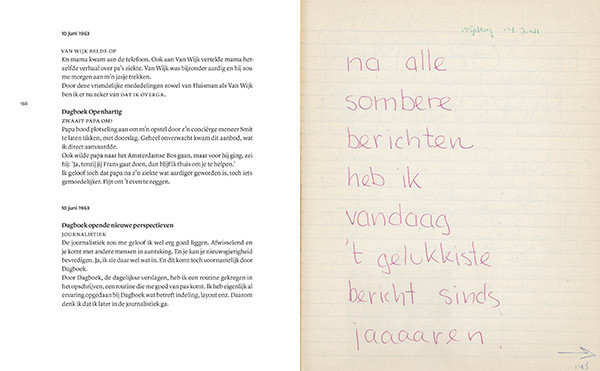 10 juni 1963
VAN WIJK BELDE OP
En mama kwam aan de telefoon. Ook aan Van Wijk vertelde mama het-
zelfde verhaal over pa's ziekte. Van Wijk was bijzonder aardig en hij zou
me morgen aan m'n jasje trekken.
Door deze vriendelijke mededelingen zowel van Huisman als Van Wijk
ben ik er nu zeker van DAT IK OVERGA.
160
Dagboek Openhartig
ZWAAIT PAPA OM?
Papa bood plotseling aan om m'n opstel door z'n conciërge meneer Smit
te laten tikken, met doorslag. Geheel onverwacht kwam dit aanbod, wat
ik direct aanvaardde.
Ook wilde papa naar het Amsterdamse Bos gaan, maar voor hij ging, zei
hij: 'Ja, tenzij jij Frans gaat doen, dan blijf ik thuis om je te helpen.'
Ik geloof toch dat papa na z'n ziekte wat aardiger geworden is, toch iets
gemoedelijker. Fijn om 't even te zeggen.
10 juni 1963
Dagboek opende nieuwe perspectieven
JOURNALISTIEK
De journalistiek zou me geloof ik wel erg goed liggen. Afwisselend en
je komt met andere mensen in aanraking. En je kan je nieuwsgierigheid
bevredigen. Ja, ik zie daar wel wat in. En dit komt toch voornamelijk door
Dagboek.
Door Dagboek, de dagelijkse verslagen, heb ik een routine gekregen in
het opschrijven, een routine die me goed van pas komt. Ik heb eigenlijk al
ervaring opgedaan bij Dagboek wat betreft indeling, layout enz. Daarom
denk ik dat ik later in de journalistiek ga.
na alle
sombere
berichten
heb ik
vandaag
't gelukkiste
bericht sinds
jaaaaren.